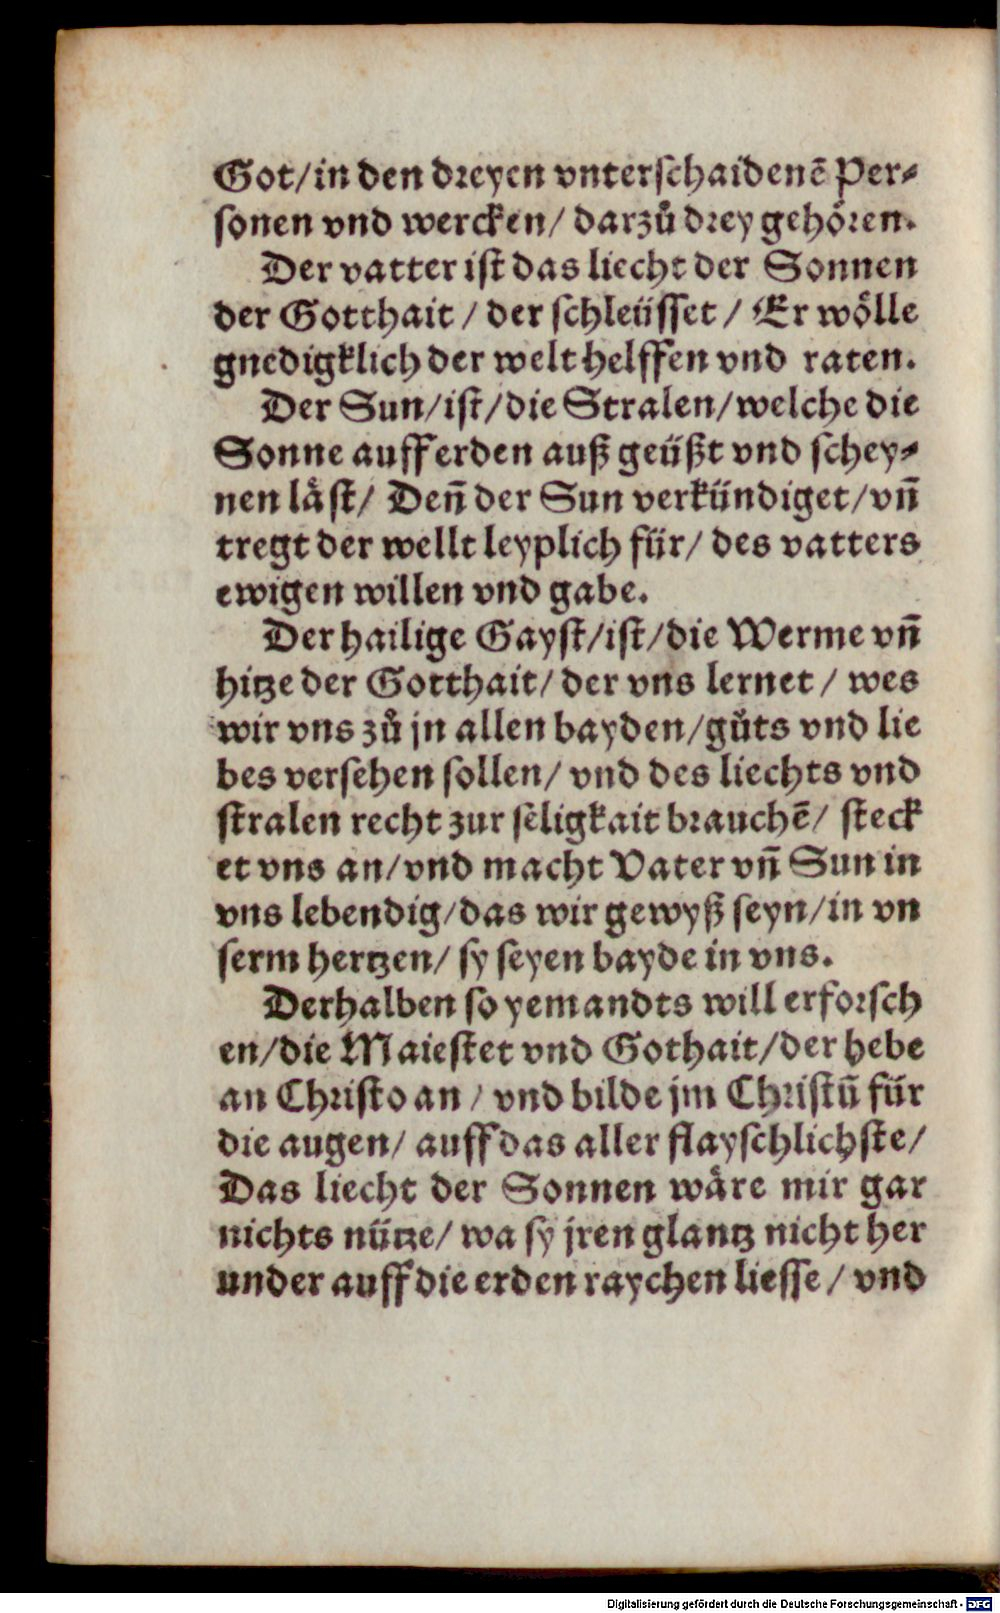 Got/in den dreyen vnterschaidenē Per⸗
sonen vnd wercken/ darzů drey gehören.
Der vatter ist das liecht der Sonnen
der Gotthait / der schleüsset / Er wölle
gnedigklich der welt helffen vnd raten.
Der Sun/ist/die Stralen/welche die
Sonne auff erden auß geüßt vnd schey⸗
nen läst/ Deñ der Sun verkündiget/vñ
tregt der wellt leyplich für/ des vatters
ewigen willen vnd gabe.
Der hailige Gayst/ist/die Werme vñ
hitze der Gotthait/ der vns lernet / wes
wir vns zů jn allen bayden/gůts vnd lie
bes versehen sollen/ vnd des liechts vnd
stralen recht zur seligkait brauchē/ steck
et vns an/vnd macht Vater vñ Sun in
vns lebendig/das wir gewyß seyn/in vn
serm hertzen/ sy seyen bayde in vns.
Derhalben so yemandts will erforsch
en/die Maiestet vnd Gothait/der hebe
an Christo an / vnd bilde jm Christū für
die augen/ auff das aller flayschlichste/
Das liecht der Sonnen wäre mir gar
nichts nütze/ wa sy jren glantz nicht her
under auff die erden raychen liesse / vnd
Digitalisierung gefördert durch die Deutsche Forschungsgemeinschaft - DFG